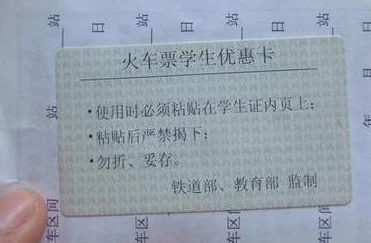 火车票学生优惠卡
•使用时必须粘贴在学生证内页上；
•粘贴后严禁揭下；
•勿折、妥存。
铁道部、教育部 监制
站
日
站
日
站
日
年
月
日
站
站
车区间
车区间
车区间
车区间